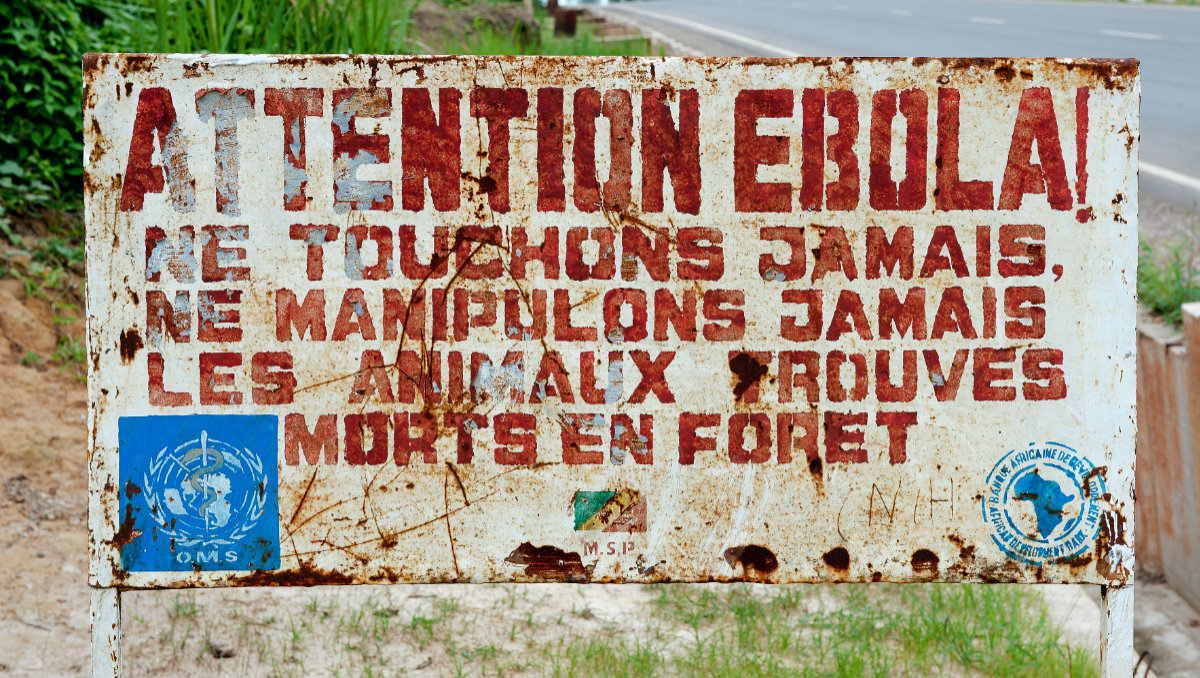 ATTENTION EBOLA!
NE TOUCHONS JAMAIS,
NE MANIPULONS JAMAIS
LES ANIMAUX TROUVES
MORTS EN FORET
OMS
M.S.P.
N H
BANQUE AFRICAINE DE DEVELOPPEMENT
AFRICAN DEVELOPMENT BANK